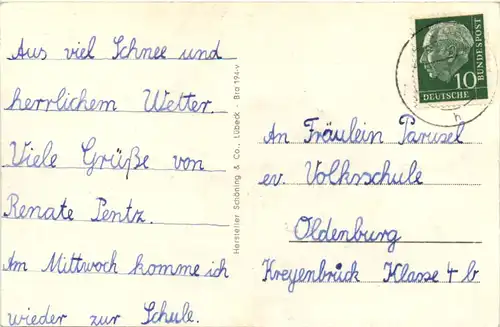 Aus viel Schnee und
herrlichem Wetter
Viele Grüße von
Renate Pentz.
Am Mittwoch komme ich
wieder zur Schule.
Hersteller Schöning & Co., Lübeck - Bra 194-v
10
DEUTSCHE
BUNDESPOST
h
An Fräulein Parusel
ev. Volksschule
Oldenburg
Kreyenbrück Klasse 4 b